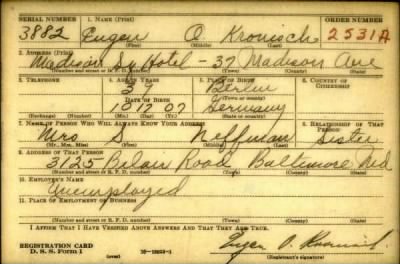 SERIAL NUMBER 1. NAME (Print) ORDER NUMBER
3882 Eugen O Kronisch 2531A
(First) (Middle) (Last)
2. ADDRESS (Print)
Madison Sq Hotel - 37 Madison Ave
(Number and street or R. F. D. number) (Town) (County) (State)
3. TELEPHONE 4. AGE IN YEARS 5. PLACE OF BIRTH 6. COUNTRY OF CITIZENSHIP
37 Berlin
DATE OF BIRTH (Town or county)
10 12 07 Germany
(Mo.) (Day) (Yr.) (State or country)
7. NAME OF PERSON WHO WILL ALWAYS KNOW YOUR ADDRESS 8. RELATIONSHIP OF THAT PERSON
Mrs S Neffman Sister
(Mr., Mrs., Miss) (First) (Middle) (Last)
9. ADDRESS OF THAT PERSON
3125 Road Baltimore Md
(Number and street or R. F. D. number) (Town) (County) (State)
10. EMPLOYER'S NAME
Unemployed
11. PLACE OF EMPLOYMENT OR BUSINESS
(Number and street or R. F. D. number) (Town) (County) (State)
I AFFIRM THAT I HAVE VERIFIED ABOVE ANSWERS AND THAT THEY ARE TRUE.
REGISTRATION CARD
D. S. S. Form 1 (over) Eugen O. Kronisch
(Registrant's signature)